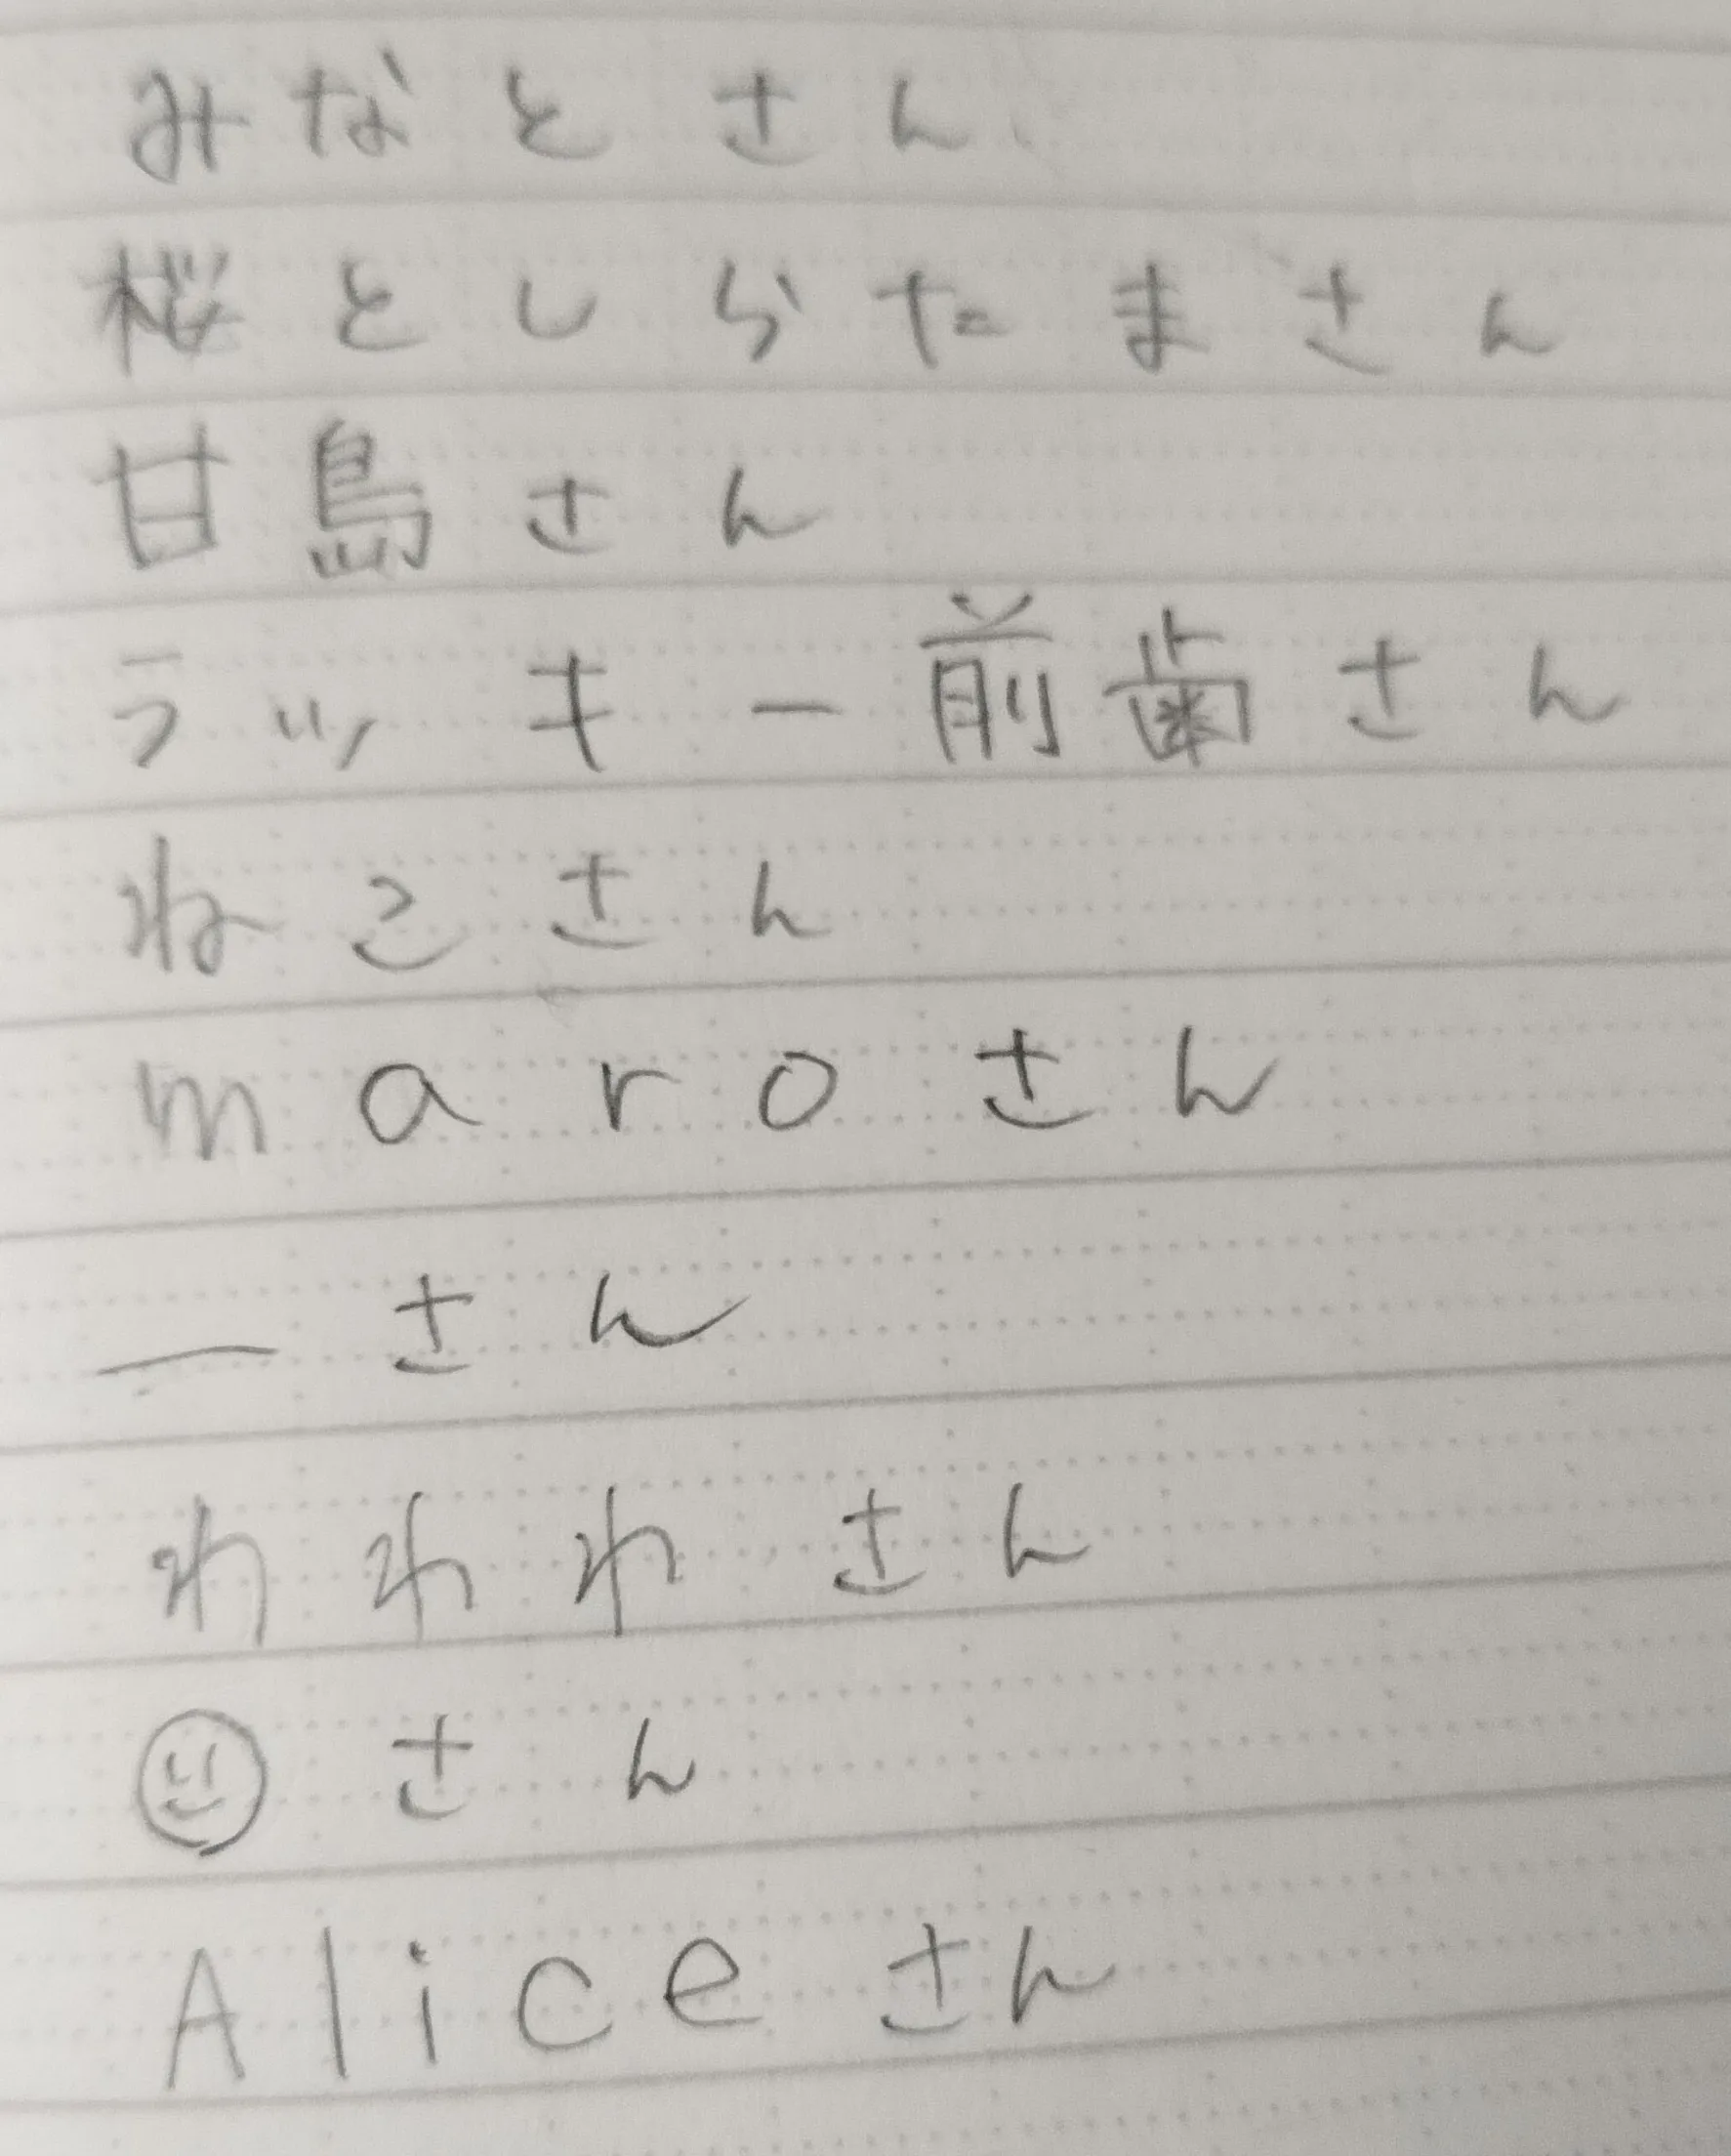 みなとさん
桜としらたまさん
甘島さん
ラッキー前歯さん
ねこさん
maroさん
一さん
わわわさん
☺さん
Aliceさん